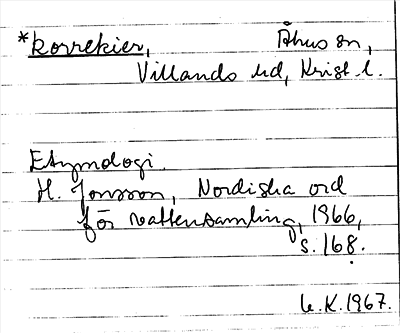 *korrekier, Åhus sn,
Villands hd, Krist l.
Etymologi.
H. Jonsson, Nordiska ord
för vattensamling, 1966,
s. 168.
G.K. 1967.